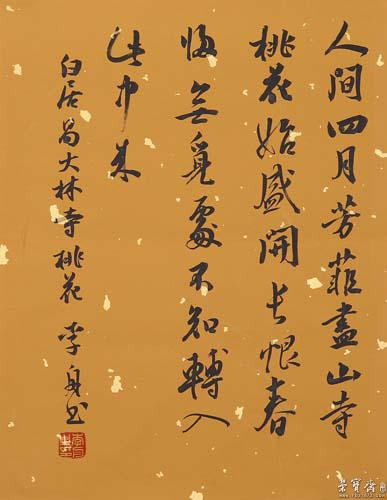 人間四月芳菲盡山寺
桃花始盛開長恨春
歸無覓處不知轉入
此中來
白居易大林寺桃花 李書